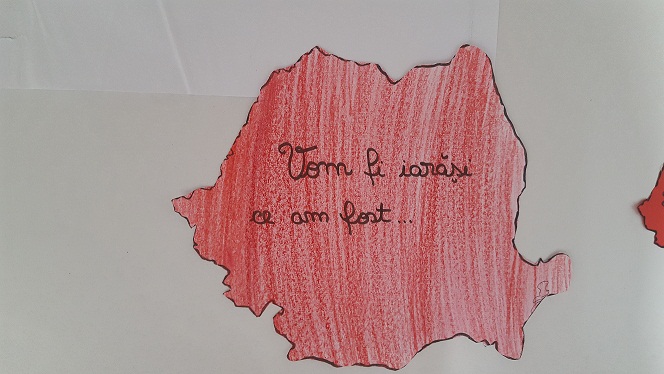 Vom fi iarăși
ce am fost...